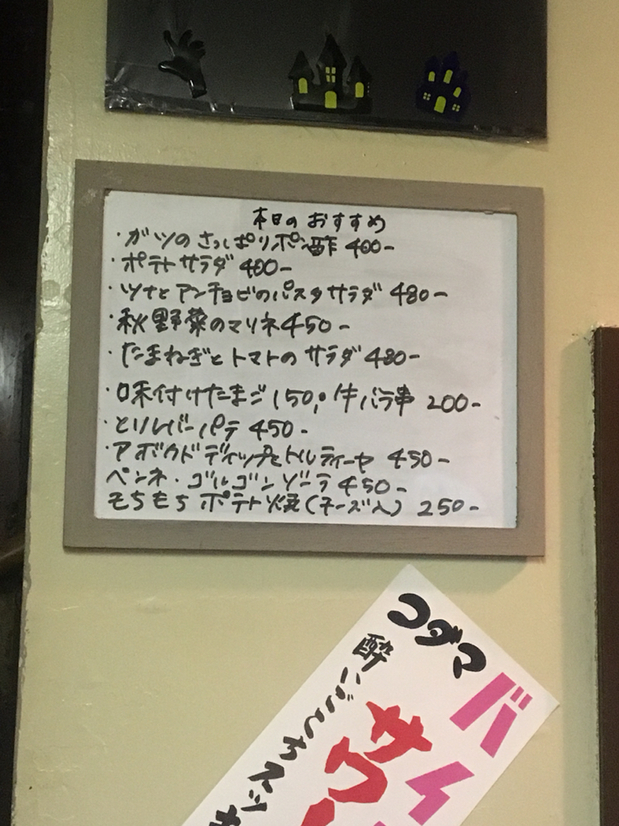 本日のおすすめ
・ガツのさっぱりポン酢 400-
・ポテトサラダ 400-
・ツナとアンチョビのパスタサラダ 480-
・秋野菜のマリネ 450-
・たまねぎとトマトのサラダ 480-
・味付けたまご 150,・牛バラ串 200-
・とりレバーパテ 450-
・アボカドディップとトルティーヤ 450-
ペンネ・ゴルゴンゾーラ 450-
もちもちポテト焼(チーズ入) 250-
コダマ
バイ
サワー
酔いごこちスッ